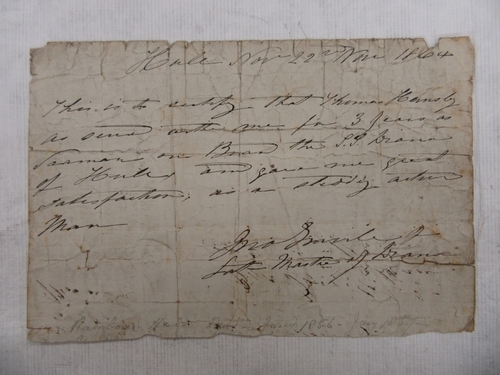 Hull Nov 22nd 1864
This is to certify that Thomas
as served with me for 3 years as
Seaman on Board the SS Diana
of Hull and gave me great
satisfaction, as a steady active
Man
Jno
Late Master of Diana
1866